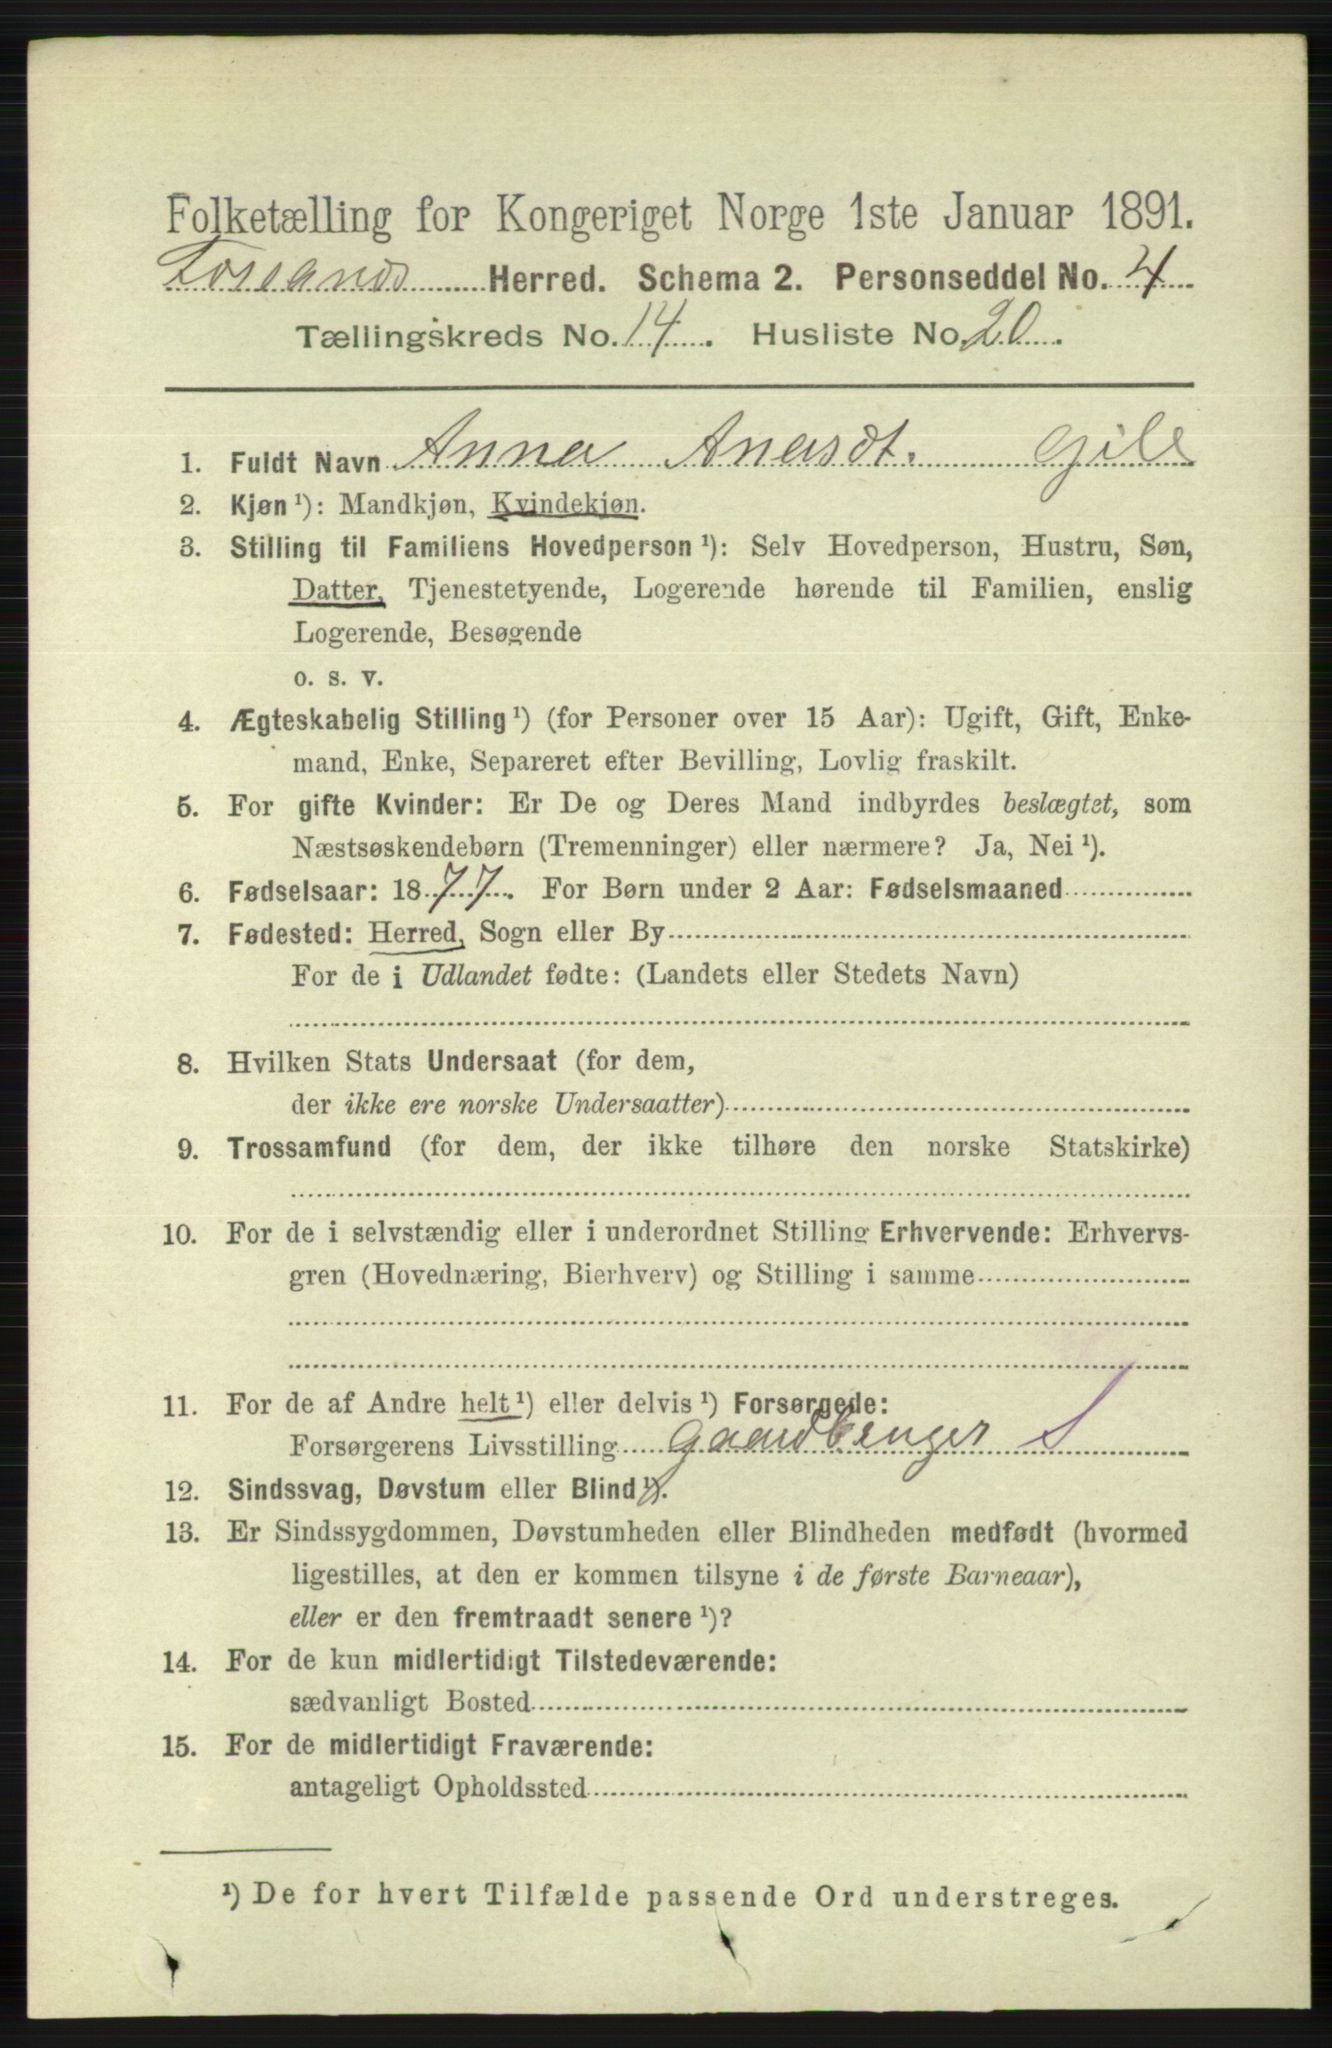 Folketælling for Kongeriget Norge 1ste Januar 1891.
Fossands Herred. Schema 2. Personseddel No. 4
Tællingskreds No. 14. Husliste No. 20.
1. Fuldt Navn Anna Anersdt. Gile
2. Kjøn ¹): Mandkjøn, Kvindekjøn.
3. Stilling til Familiens Hovedperson ¹): Selv Hovedperson, Hustru, Søn,
Datter, Tjenestetyende, Logerende hørende til Familien, enslig
Logerende, Besøgende
o. s. v.
4. Ægteskabelig Stilling ¹) (for Personer over 15 Aar): Ugift, Gift, Enke-
mand, Enke, Separeret efter Bevilling, Lovlig fraskilt.
5. For gifte Kvinder: Er De og Deres Mand indbyrdes beslægtet, som
Næstsøskendebørn (Tremenninger) eller nærmere? Ja, Nei ¹).
6. Fødselsaar: 1877. For Børn under 2 Aar: Fødselsmaaned
7. Fødested: Herred, Sogn eller By
For de i Udlandet fødte: (Landets eller Stedets Navn)
8. Hvilken Stats Undersaat (for dem,
der ikke ere norske Undersaatter)
9. Trossamfund (for dem, der ikke tilhøre den norske Statskirke)
10. For de i selvstændig eller i underordnet Stilling Erhvervende: Erhvervs-
gren (Hovednæring, Bierhverv) og Stilling i samme
11. For de af Andre helt ¹) eller delvis ¹) Forsørgede:
Forsørgerens Livsstilling Gaardbruger S
12. Sindssvag, Døvstum eller Blind ¹).
13. Er Sindssygdommen, Døvstumheden eller Blindheden medfødt (hvormed
ligestilles, at den er kommen tilsyne i de første Barneaar),
eller er den fremtraadt senere ¹)?
14. For de kun midlertidigt Tilstedeværende:
sædvanligt Bosted
15. For de midlertidigt Fraværende:
antageligt Opholdssted
¹) De for hvert Tilfælde passende Ord understreges.